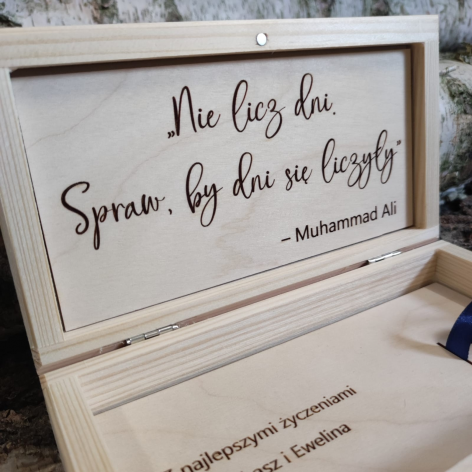 „Nie licz dni.
Spraw, by dni się liczyły”
– Muhammad Ali
najlepszymi życzeniami
i Ewelina